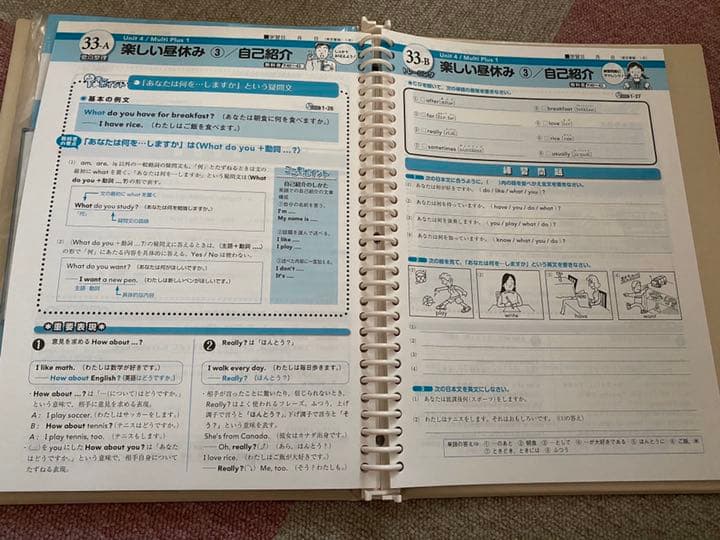 33-A
Unit 4 / Multi Plus 1
■学習日 月 日
楽しい昼休み ③／自己紹介
「あなたは何を…しますか」という疑問文
1-26
●基本の例文
What do you have for breakfast? (あなたは朝食に何を食べますか)
── I have rice. (わたしはご飯を食べます。)
「あなたは何を…しますか」は〈What do you ＋動詞 ...?〉
(1) am, are, is 以外の一般動詞の疑問文も、「何」とたずねるときは文の
最初に what を置く。「あなたは何を…しますか」という疑問文は〈What
do you＋動詞 ...?〉の形で表す。
文の最初に what を置く
What do you study? (あなたは何を勉強しますか。)
「何」 疑問文の語順
(2) 〈What do you＋動詞 ...?〉の疑問文に答えるときは、〈主語＋動詞 ....〉
の形で「何」にあたる内容を具体的に答える。Yes / No は使わない。
What do you want? (あなたは何がほしいですか。)
── I want a new pen. (わたしは新しいペンがほしいです。)
主語 動詞 具体的な内容
自己紹介のしかた
英語での自己紹介の文章
構成
①自分の名前を言う。
I'm ....
My name is ....
②話題を選んで述べる。
I like ....
I play ....
③述べた内容に一言加える。
I don't ....
It's ....
重要表現
❶ 意見を求める How about ...?
I like math. (わたしは数学が好きです。)
── How about English? (英語はどうですか。)
・How about ...? は「…(について)はどうですか」
という意味で、相手に意見を求める表現。
A: I play soccer. (わたしはサッカーをします。)
B: How about tennis? (テニスはどうですか。)
A: I play tennis, too. (テニスもします。)
を you にした How about you? は「あなた
はどうですか。」という意味で、相手自身について
たずねる表現。
❷ Really? は「ほんとう?」
I walk every day. (わたしは毎日歩きます。)
── Really? (ほんとう?)
・相手が言ったことに驚いたり、信じられないとき、
Really? はよく使われるフレーズ。ふつう、上げ
調子で言うと「ほんとう?」、下げ調子で言うと「そ
う?」という意味を表す。
She's from Canada. (彼女はカナダ出身です。)
── Oh, really? (あら、ほんとう?)
I love rice. (わたしはご飯が大好きです。)
── Really? Me, too. (そう?わたしも。)
33-B
トレーニング
Unit 4 / Multi Plus 1
■学習日 月 日
楽しい昼休み ③／自己紹介
1-27
① after
② breakfast
③ for
④ love
⑤ really
⑥ rice
⑦ sometimes
⑧ usually
練習問題
1 次の日本文に合うように、( )内の語を並べかえ全文を書きなさい。
(1) あなたは何が好きですか。 ( do / like / what / you / ? )
(2) あなたは何を持っていますか。 ( have / you / do / what / ? )
(3) あなたは何を演奏しますか。 ( you / play / what / do / ? )
(4) あなたは何を知っていますか。 ( know / what / you / do / ? )
2 次の絵を見て、「あなたは何を…しますか」という英文を書きなさい。
(1)
play
(2)
write
(3)
have
(4)
want
(1)
(2)
(3)
(4)
3 次の日本文を英文にしなさい。
(1) あなたは放課後何(スポーツ)をしますか。
(2) わたしはテニスをします。それはおもしろいです。((1)の答え)
単語の答え ① …のあと ② 朝食 ③ …として ④ …が大好きである ⑤ ほんとうに ⑥ ご飯、米
⑦ ときどき、ときには ⑧ ふつう